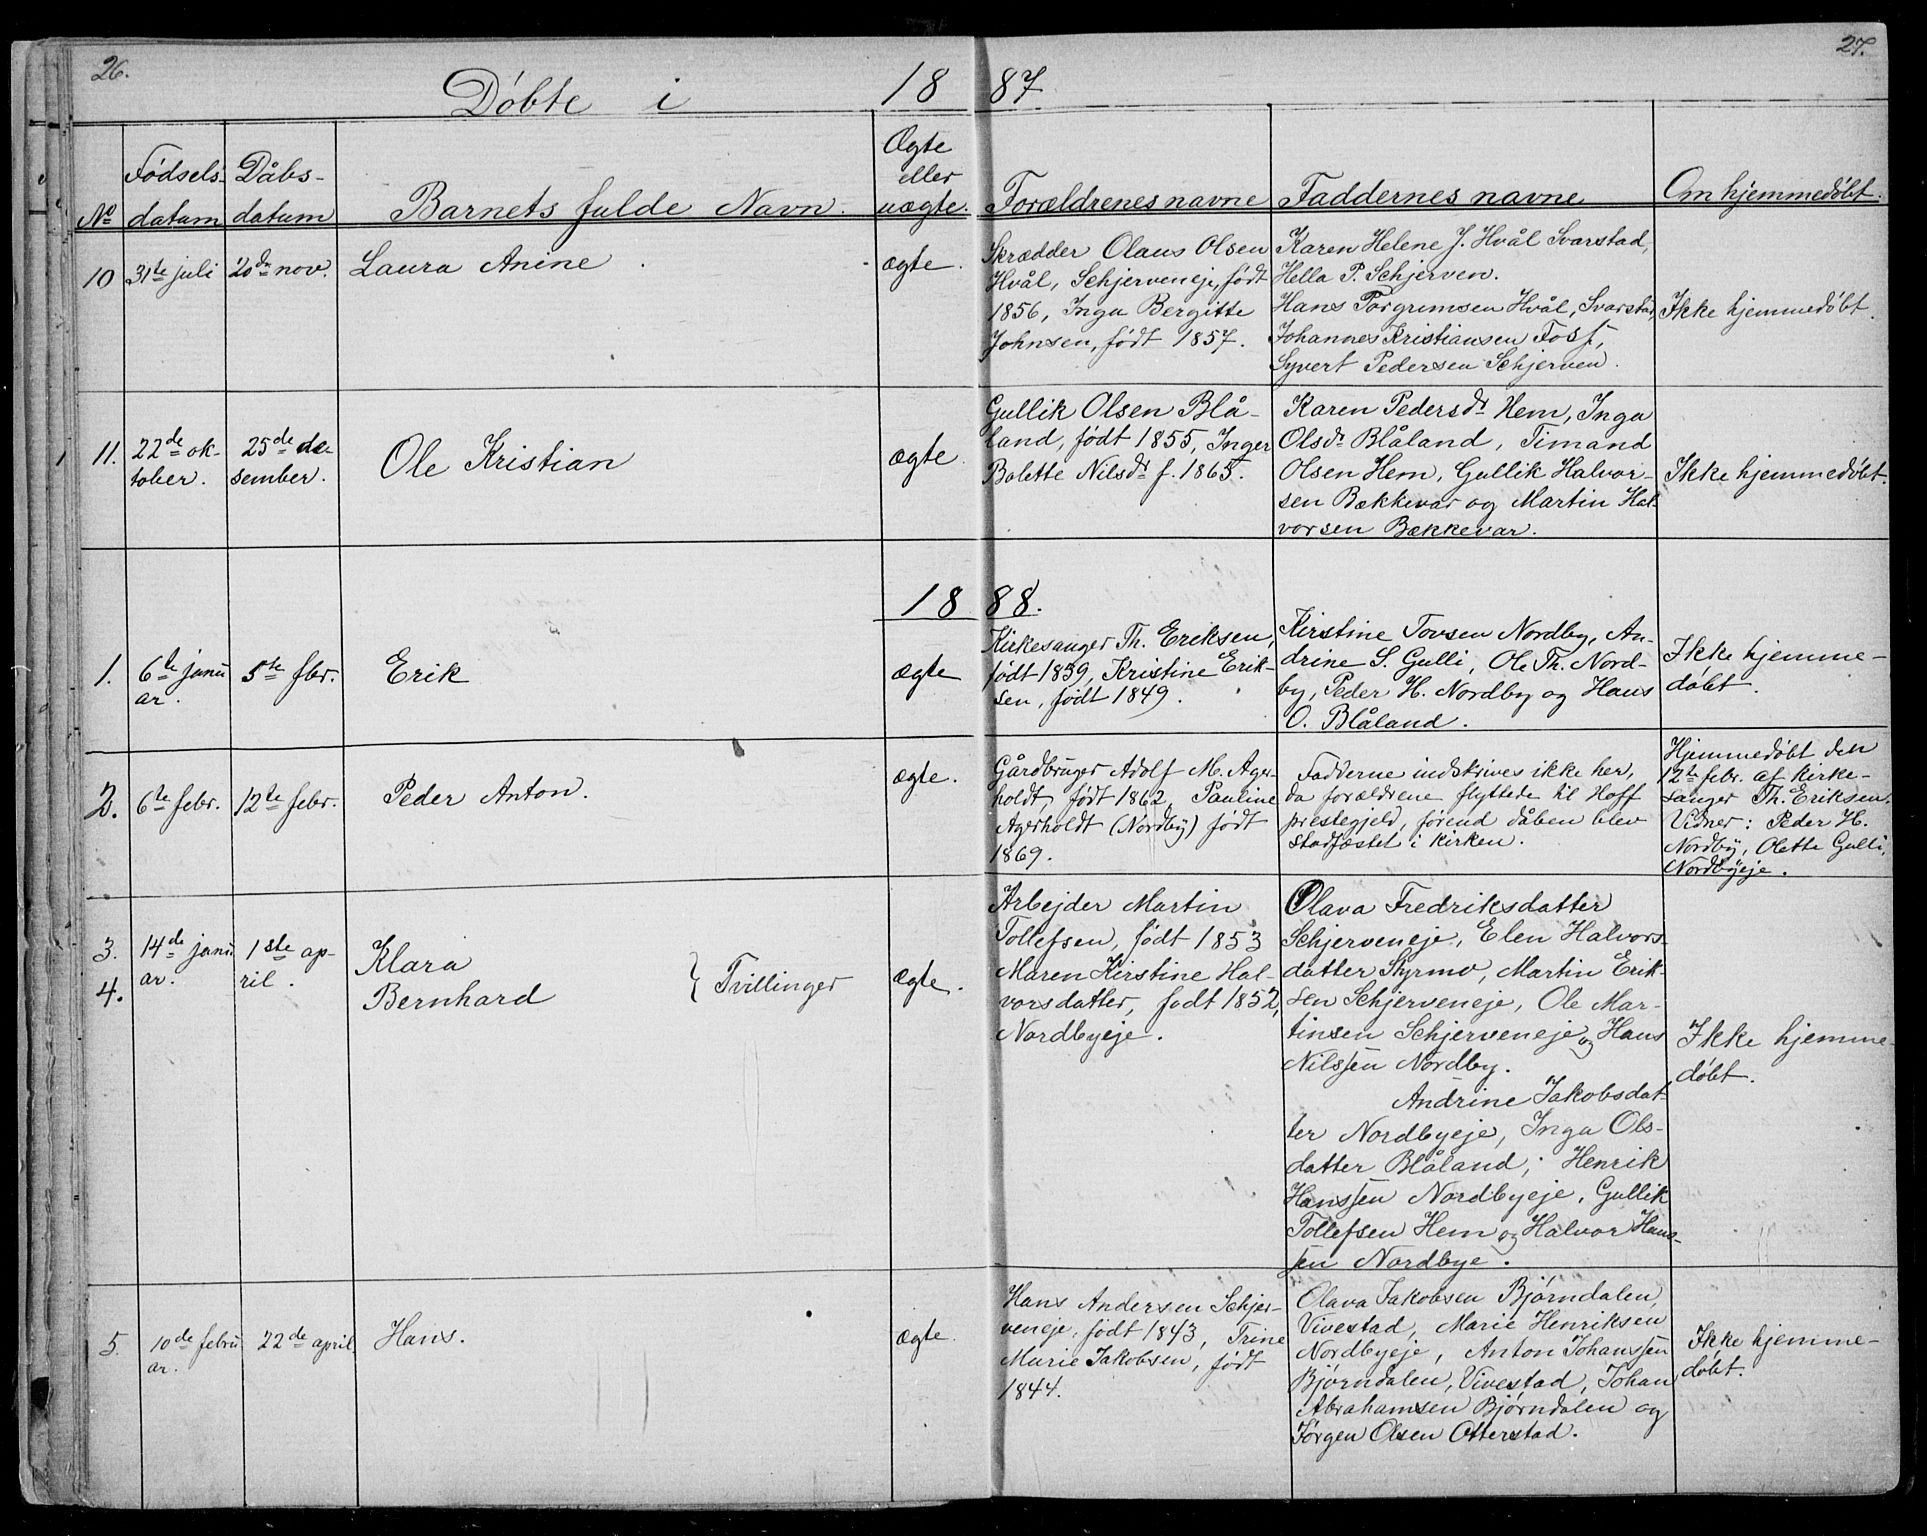 26.
27.
Døbte i 1887
No
Fødsels-
datum
Dåbs-
datum
Barnets fulde Navn.
Ægte
eller
uægte.
Forældrenes navne
Faddernes navne
Om hjemmedøbt.
10
31te juli
20de nov.
Laura Anine
ægte.
Skrædder Olaus Olsen
Hvål, Schjerveneje, født
1856, Inga Bergitte
Johnsen, født 1857.
Karen Helene J. Hvål Svarstad,
Hella P. Schjerven.
Hans Torgrimsen Hvål, Svarstad,
Johannes Kristiansen Foss,
Syvert Pedersen Schjerven.
Ikke hjemmedøbt.
11.
22de ok-
tober.
25de de-
sember.
Ole Kristian
ægte.
Gullik Olsen Blå-
land, født 1855, Inger
Bolette Nilsdr f. 1865.
Karen Pedersdr Hem, Inga
Olsdr Blåland, Timand
Olsen Hem, Gullik Halvor-
sen Bækkevar og Martin Hal-
vorsen Bækkevar.
Ikke hjemmedøbt.
1888.
1.
6te janu
ar.
5te fbr.
Erik
ægte
Kirkesanger Th. Eriksen,
født 1859, Kristine Erik-
sen, født 1849.
Kirstine Tovsen Nordby, An-
drine S. Gulli, Ole Th. Nord-
by, Peder H. Nordby og Hans
O. Blåland.
Ikke hjemme-
døbt.
2.
6te febr.
12te febr.
Peder Anton.
ægte.
Gårdbruger Adolf M. Ager-
holdt, født 1862, Pauline
Agerholdt (Nordby) født
1869.
Fadderne indskrives ikke her,
da forældrene flyttede til Hoff
prestegjeld, førend dåben blev
stadfæstet i kirken.
Hjemmedøbt den
12te febr. af kirke-
sanger Th. Eriksen.
Vidner: Peder H.
Nordby, Olette Gulli,
Nordbyeje.
3.
4.
14de janu
ar.
1ste ap-
ril.
Klara
Bernhard
} Tvillinger
Ægte.
Arbejder Martin
Tollefsen, født 1853
Maren Kirstine Hal-
vorsdatter, født 1852,
Nordbyeje.
Olava Fredriksdatter
Schjerveneje, Elen Halvors-
datter Styrmo, Martin Erik-
sen Schjerveneje, Ole Mar-
tinsen Schjerveneje og Hans
Nilssen Nordby.
Andrine Jakobsdat-
ter Nordbyeje, Inga Ols-
datter Blåland, Henrik
Hanssen Nordbyeje, Gullik
Tollefsen Hem og Halvor Hans-
sen Nordbye.
Ikke hjemme-
døbt.
5.
10de febru
ar.
22de april
Hans.
ægte.
Hans Andersen Schjer-
veneje, født 1843, Trine
Marie Jakobsen, født
1844.
Olava Jakobsen Bjørndalen,
Vivestad, Marie Henriksen
Nordbyeje, Anton Johanssen
Bjørndalen, Vivestad, Johan
Abrahamsen Bjørndalen og
Jørgen Olsen Otterstad.
Ikke hjemme-
døbt.